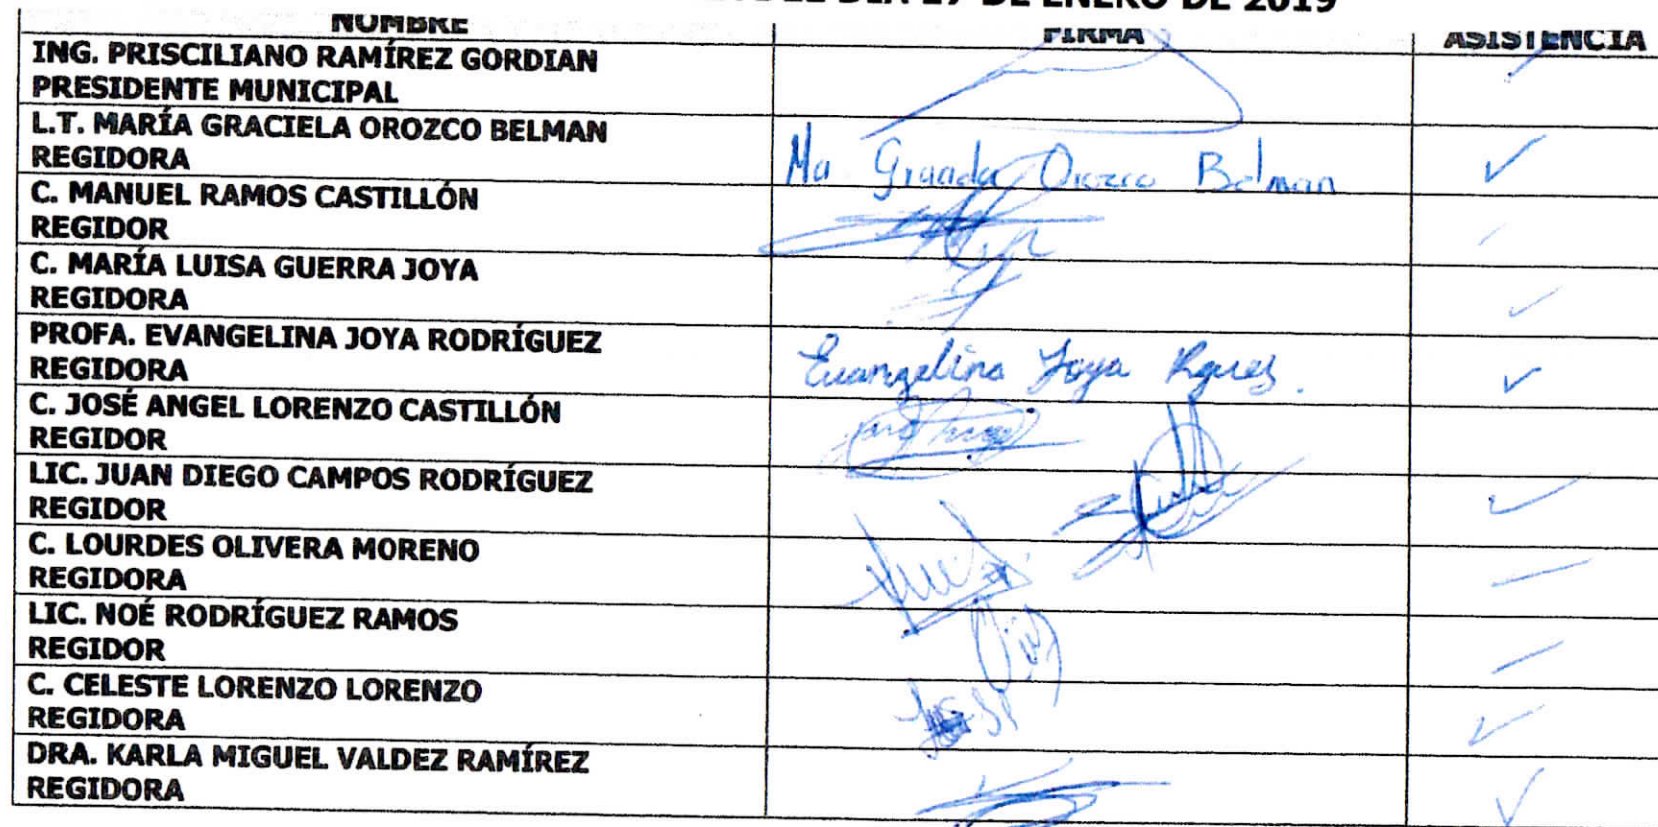 DE ENERO DE 2019
NOMBRE FIRMA ASISTENCIA
ING. PRISCILIANO RAMÍREZ GORDIAN
PRESIDENTE MUNICIPAL
L.T. MARÍA GRACIELA OROZCO BELMAN
REGIDORA
Ma. Graciela Orozco Belman
C. MANUEL RAMOS CASTILLÓN
REGIDOR
C. MARÍA LUISA GUERRA JOYA
REGIDORA
PROFA. EVANGELINA JOYA RODRÍGUEZ
REGIDORA
Evangelina Joya Rguez.
C. JOSÉ ANGEL LORENZO CASTILLÓN
REGIDOR
LIC. JUAN DIEGO CAMPOS RODRÍGUEZ
REGIDOR
C. LOURDES OLIVERA MORENO
REGIDORA
LIC. NOÉ RODRÍGUEZ RAMOS
REGIDOR
C. CELESTE LORENZO LORENZO
REGIDORA
DRA. KARLA MIGUEL VALDEZ RAMÍREZ
REGIDORA